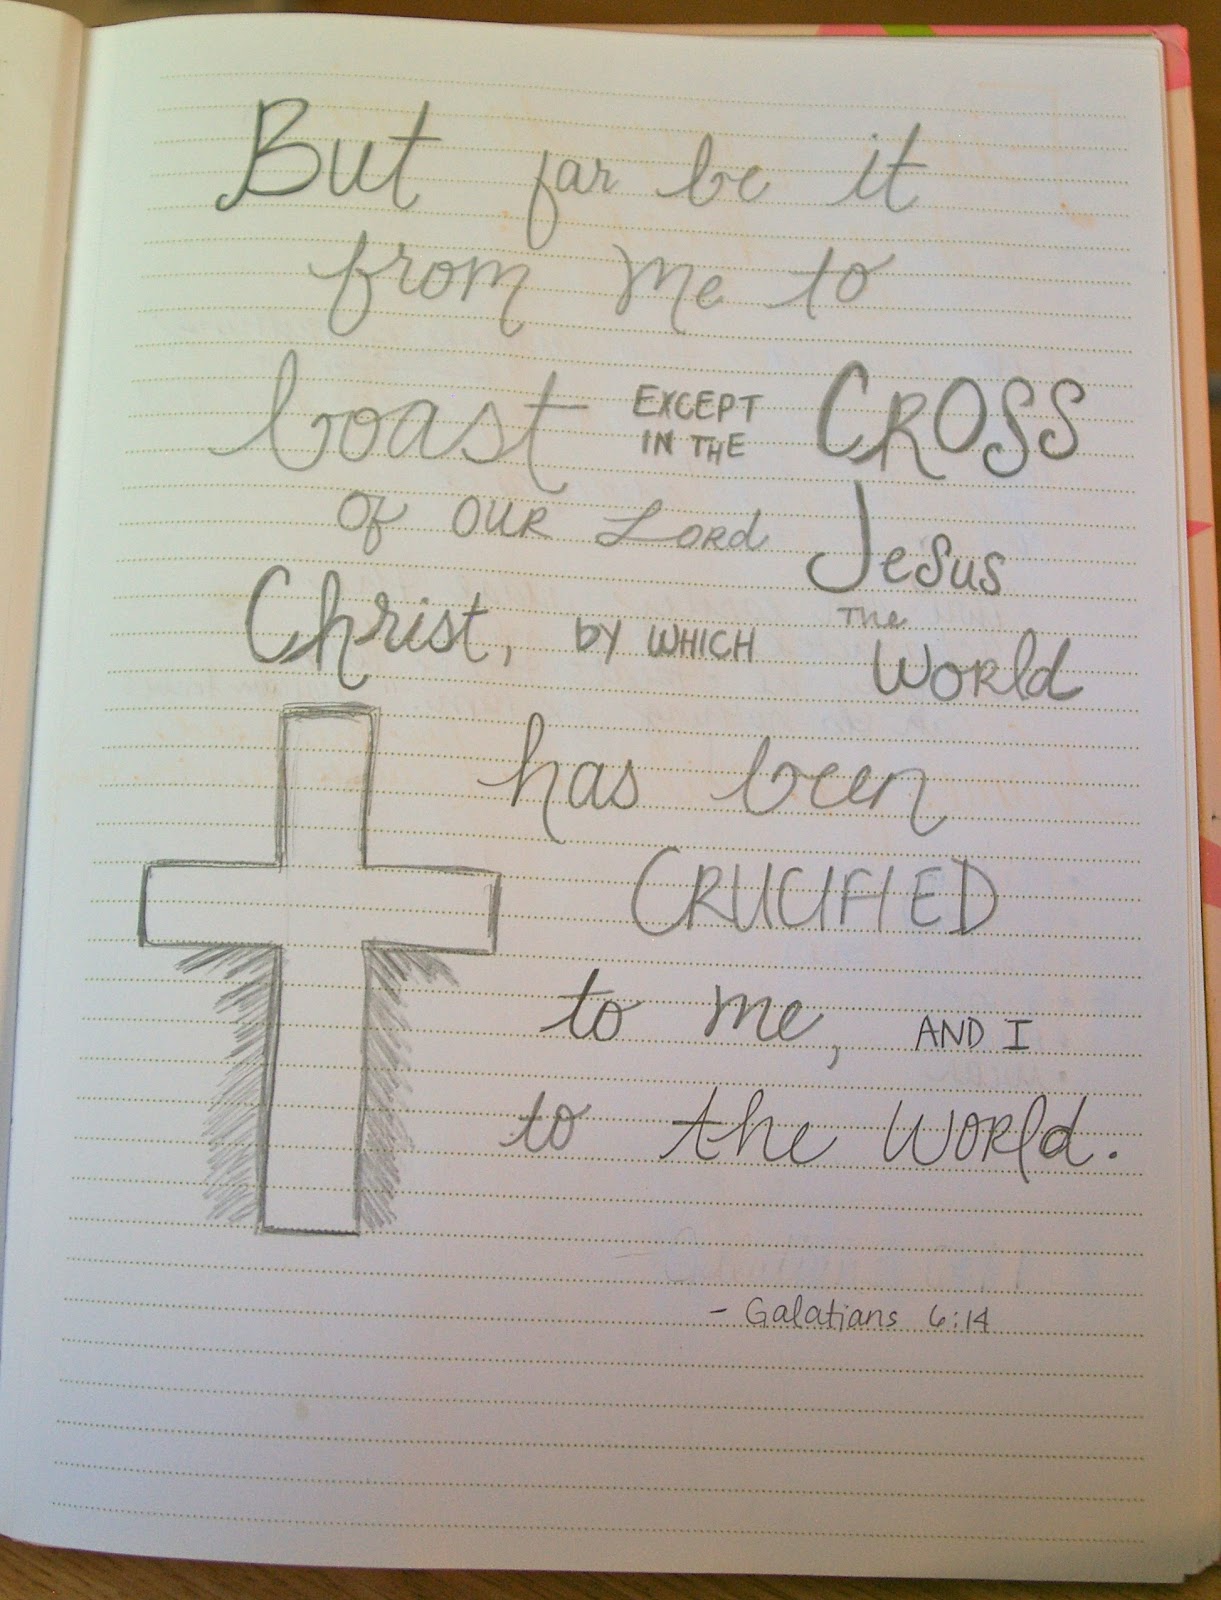 But far be it
from me to
boast EXCEPT IN THE CROSS
of OUR Lord Jesus
Christ, by WHICH The World
has been
CRUCIFIED
to me, AND I
to the World.
- Galatians 6:14